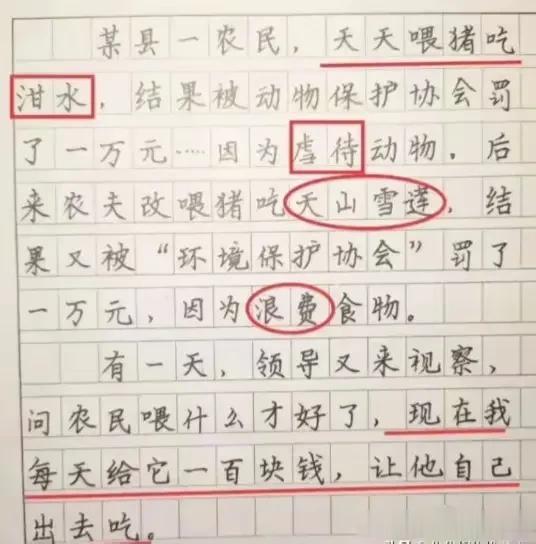 某县一农民，天天喂猪吃
泔水，结果被动物保护协会罚
了一万元……因为虐待动物。后
来农夫改喂猪吃天山雪莲，结
果又被“环境保护协会”罚了
一万元，因为浪费食物。
有一天，领导又来视察，
问农民喂什么才好了，现在我
每天给它一百块钱，让他自己
出去吃。